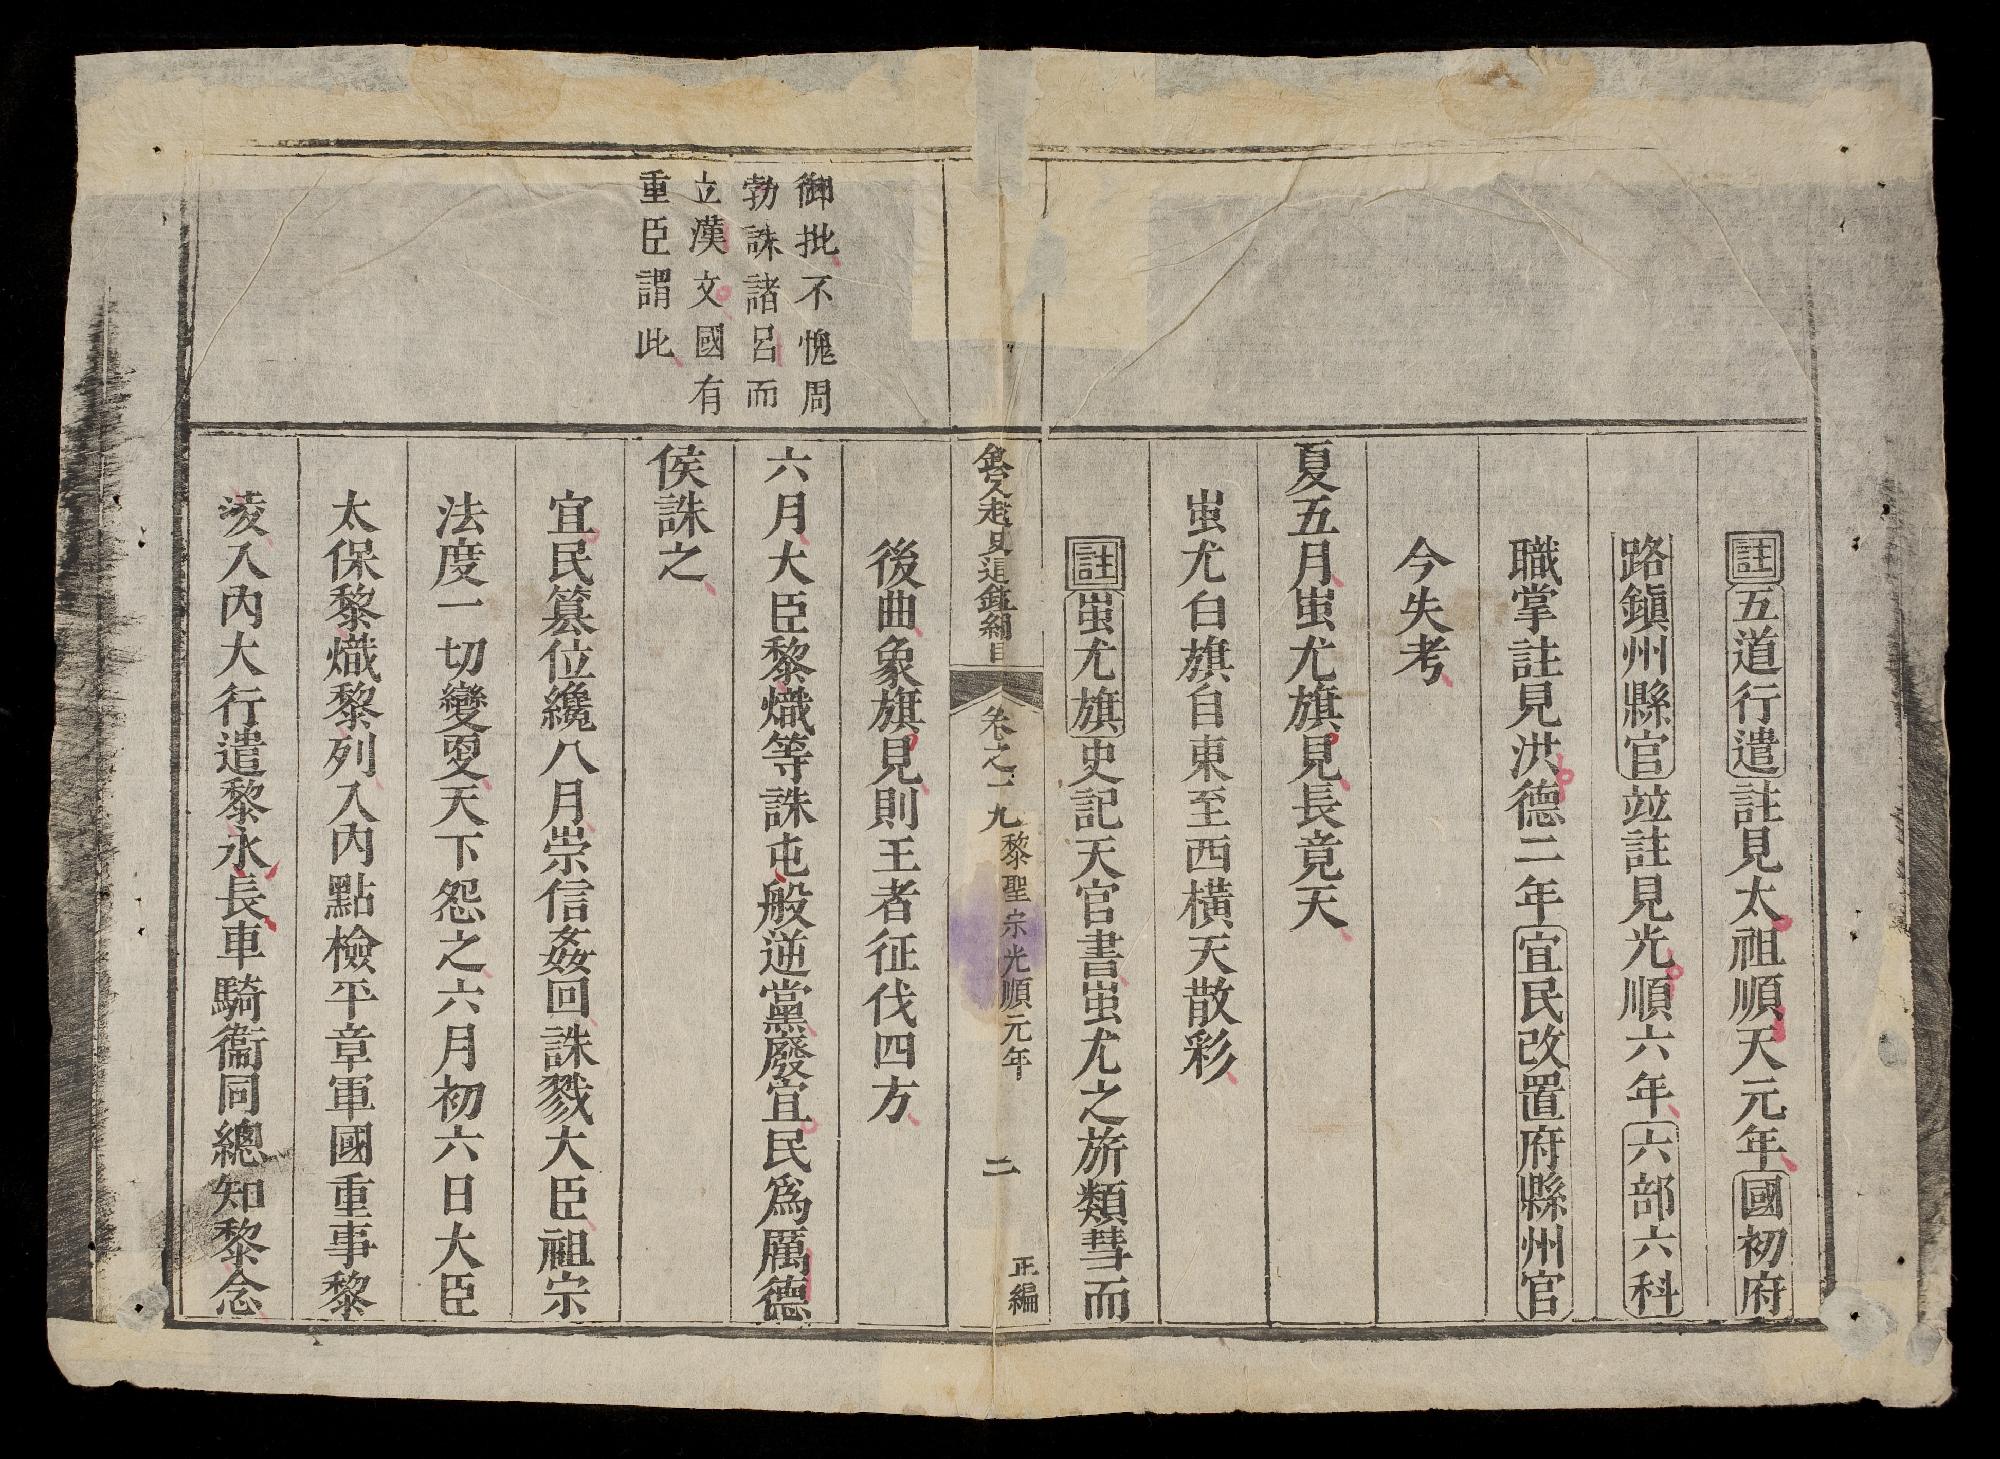 註五道行遣註見太祖順天元年國初府
路鎭州縣官竝註見光順六年六部六科
職掌註見洪德二年宜民改置府縣州官
今失考
夏五月蚩尤旗見長竟天
蚩尤白旗自東至西橫天散彩
註蚩尤旗史記天官書蚩尤之旂類彗而
欽定越史通鑑綱目
卷之十九
黎聖宗光順元年
二
正編
後曲象旗見則王者征伐四方
御批不愧周
勃誅諸呂而
立漢文國有
重臣謂此
六月大臣黎熾等誅屯般逆黨廢宜民爲厲德
侯誅之
宜民簒位纔八月崇信姦回誅戮大臣祖宗
法度一切變更天下怨之六月初六日大臣
太保黎熾黎列入內點檢平章軍國重事黎
淩入內大行遣黎永長車騎衞同總知黎念